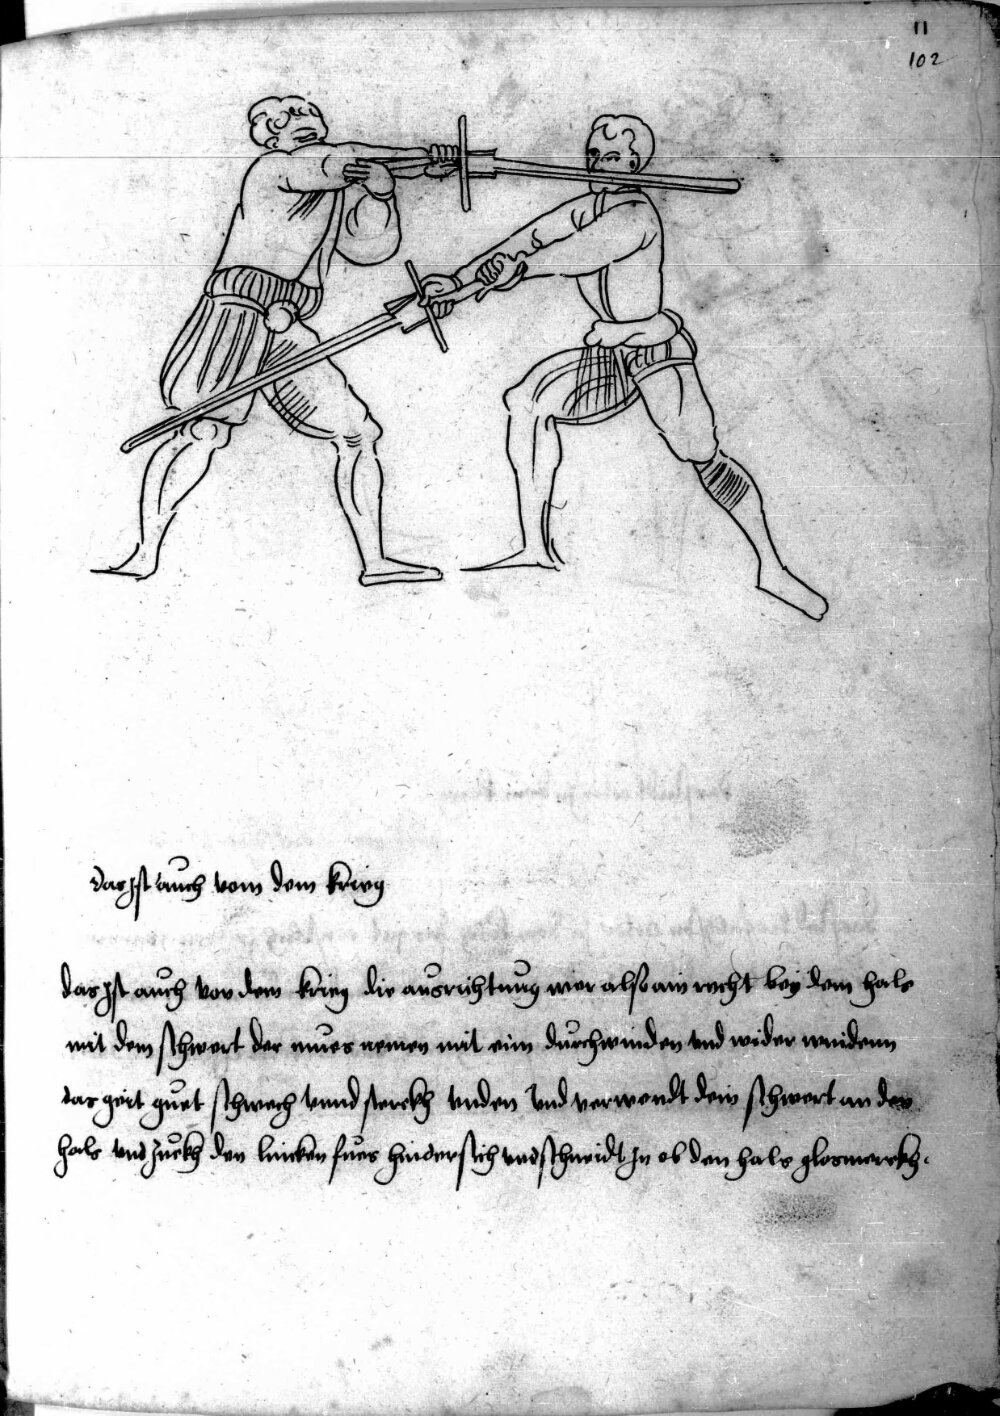 11
102
das Ist auch vom dem krieg
das Ist auch von dem krieg die ausrichtung wer also ain recht bey dem hals
mit dem schwert der mues nemen mit eim durchwinden und wider winden
das gört guet schwech unnd sterckh unden und verwendt dein schwert an den
hals und Zuckh den lincken fues hindersich und schneidt In ob den hals glosmerckh.